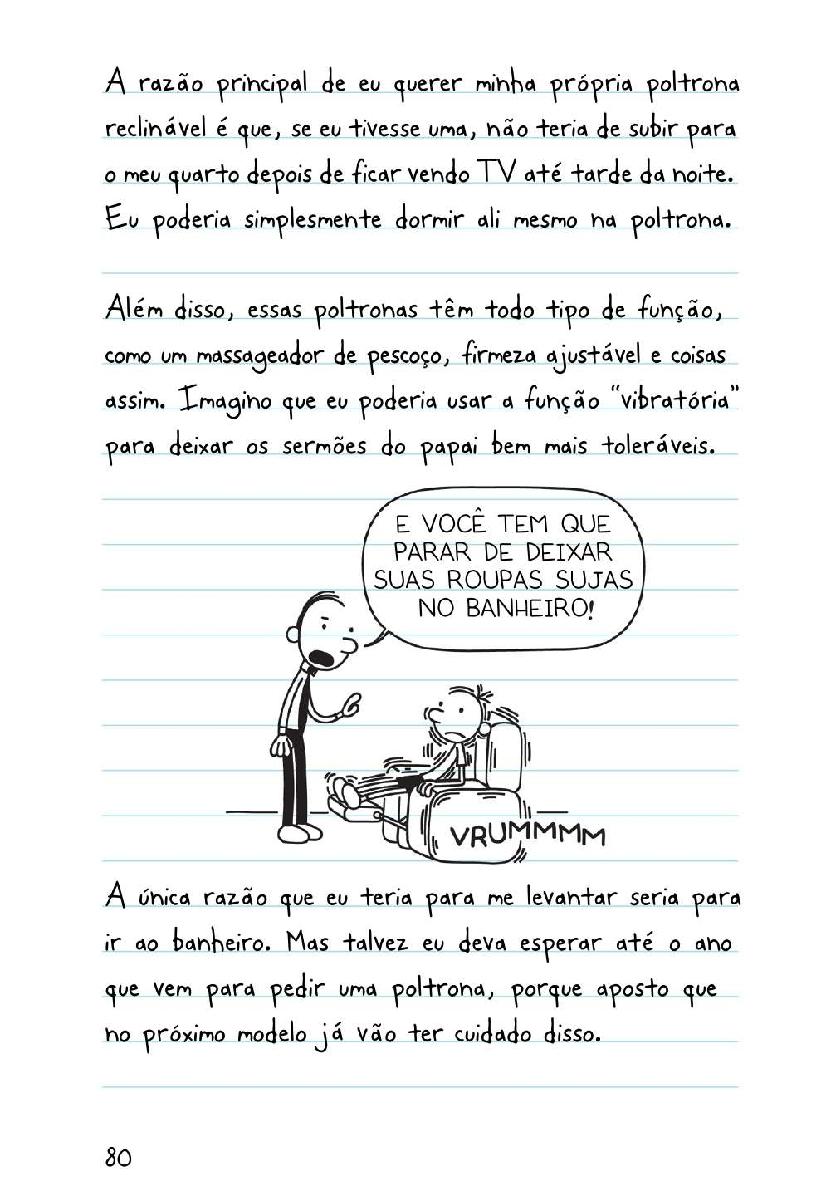 A razão principal de eu querer minha própria poltrona
reclinável é que, se eu tivesse uma, não teria de subir para
o meu quarto depois de ficar vendo TV até tarde da noite.
Eu poderia simplesmente dormir ali mesmo na poltrona.
Além disso, essas poltronas têm todo tipo de função,
como um massageador de pescoço, firmeza ajustável e coisas
assim. Imagino que eu poderia usar a função "vibratória"
para deixar os sermões do papai bem mais toleráveis.
E VOCÊ TEM QUE
PARAR DE DEIXAR
SUAS ROUPAS SUJAS
NO BANHEIRO!
VRUMMMMM
A única razão que eu teria para me levantar seria para
ir ao banheiro. Mas talvez eu deva esperar até o ano
que vem para pedir uma poltrona, porque aposto que
no próximo modelo já vão ter cuidado disso.
80